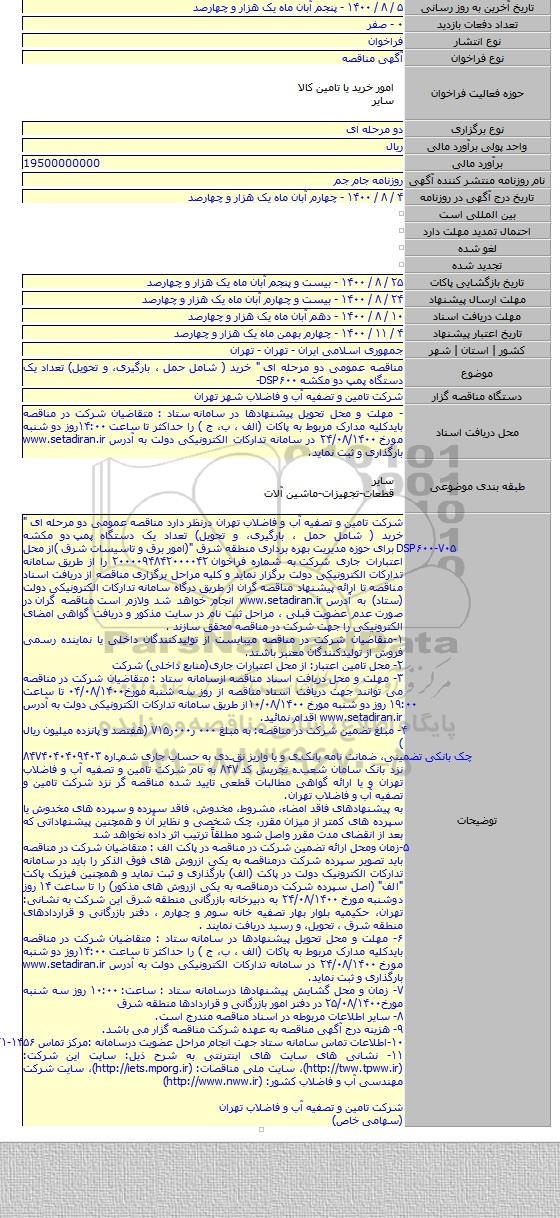 تاریخ آخرین به روز رسانی ۵ / ۸ / ۱۴۰۰ - پنجم آبان ماه یک هزار و چهارصد
تعداد دفعات بازدید ۰ - صفر
نوع انتشار فراخوان
نوع فراخوان آگهی مناقصه
حوزه فعالیت فراخوان امور خرید یا تامین کالا
سایر
نوع برگزاری دو مرحله ای
واحد پولی برآورد مالی ریال
برآورد مالی 19500000000
نام روزنامه منتشر کننده آگهی روزنامه جام جم
تاریخ درج آگهی در روزنامه ۴ / ۸ / ۱۴۰۰ - چهارم آبان ماه یک هزار و چهارصد
بین المللی است
احتمال تمدید مهلت دارد
لغو شده
تجدید شده
تاریخ بازگشایی پاکات ۲۵ / ۸ / ۱۴۰۰ - بیست و پنجم آبان ماه یک هزار و چهارصد
مهلت ارسال پیشنهاد ۲۴ / ۸ / ۱۴۰۰ - بیست و چهارم آبان ماه یک هزار و چهارصد
مهلت دریافت اسناد ۱۰ / ۸ / ۱۴۰۰ - دهم آبان ماه یک هزار و چهارصد
تاریخ اعتبار پیشنهاد ۴ / ۱۱ / ۱۴۰۰ - چهارم بهمن ماه یک هزار و چهارصد
کشور | استان | شهر جمهوری اسلامی ایران - تهران - تهران
موضوع مناقصه عمومی دو مرحله ای " خرید ( شامل حمل ، بارگیری، و تحویل) تعداد یک
دستگاه پمپ دو مکشه DSP۶۰۰-
دستگاه مناقصه گزار شرکت تامین و تصفیه آب و فاضلاب شهر تهران
محل دریافت اسناد - مهلت و محل تحویل پیشنهادها در سامانه ستاد : متقاضیان شرکت در مناقصه
بایدکلیه مدارک مربوط به پاکات (الف ، ب، ج ) را حداکثر تا ساعت ۱۴:۰۰روز دو شنبه
مورخ ۲۴/۰۸/۱۴۰۰ در سامانه تدارکات الکترونیکی دولت به آدرس www.setadiran.ir
بارگذاری و ثبت نماید.
طبقه بندی موضوعی سایر
قطعات-تجهیزات-ماشین آلات
توضیحات
شرکت تامین و تصفیه آب و فاضلاب تهران درنظر دارد مناقصه عمومی دو مرحله ای "
خرید ( شامل حمل ، بارگیری، و تحویل) تعداد یک دستگاه پمپ دو مکشه
DSP۶۰۰-۷۰۵ برای حوزه مدیریت بهره برداری منطقه شرق "(امور برق و تاسیسات شرق )از محل
اعتبارات جاری شرکت به شماره فراخوان ۲۰۰۰۰۹۴۸۴۲۰۰۰۰۴۲ را از طریق سامانه
تدارکات الکترونیکی دولت برگزار نماید و کلیه مراحل برگزاری مناقصه از دریافت اسناد
مناقصه تا ارائه پیشنهاد مناقصه گران از طریق درگاه سامانه تدارکات الکترونیکی دولت
(ستاد) به آدرس www.setadiran.ir انجام خواهد شد ولازم است مناقصه گران در
صورت عدم عضویت قبلی ، مراحل ثبت نام در سایت مذکور و دریافت گواهی امضای
الکترونیکی را جهت شرکت در مناقصه محقق سازند .
۱-متقاضیان شرکت در مناقصه میبایست از تولیدکنندگان داخلی یا نماینده رسمی
فروش از تولیدکنندگان معتبر باشند.
۲- محل تامین اعتبار: از محل اعتبارات جاری(منابع داخلی) شرکت
۳- مهلت و محل دریافت اسناد مناقصه ازسامانه ستاد : متقاضیان شرکت در مناقصه
می توانند جهت دریافت اسناد مناقصه از روز سه شنبه مورخ۰۴/۰۸/۱۴۰۰ تا ساعت
۱۹:۰۰ روز دو شنبه مورخ ۱۰/۰۸/۱۴۰۰از طریق سامانه تدارکات الکترونیکی دولت به آدرس
www.setadiran.ir اقدام نمائید.
۴- مبلغ تضمین شرکت در مناقصه: به مبلغ ۷۱۵٫۰۰۰٫۰۰۰ (هفتصد و پانزده میلیون ریال
)
چک بانکی تضمینی، ضمانت نامه بانکـی و یا واریز نقـدی به حساب جاری شمـاره ۸۴۷۴۰۴۰۴۰۹۴۰۳
نزد بانک سامان شعبـه تجریش کد ۸۴۷ به نام شرکت تامین و تصفیه آب و فاضلاب
تهران و یا ارائه گواهی مطالبات قطعی تایید شده مناقصه گر نزد شرکت تامین و
تصفیه آب و فاضلاب تهران.
به پیشنهادهای فاقد امضاء، مشروط، مخدوش، فاقد سپرده و سپرده های مخدوش یا
سپرده های کمتر از میزان مقرر، چک شخصی و نظایر آن و همچنین پیشنهاداتی که
بعد از انقضای مدت مقرر واصل شود مطلقاً ترتیب اثر داده نخواهد شد
۵-زمان ومحل ارائه تضمین شرکت در مناقصه در پاکت الف : متقاضیان شرکت در مناقصه
باید تصویر سپرده شرکت درمناقصه به یکی ازروش های فوق الذکر را باید در سامانه
تدارکات الکترونیک دولت در پاکت (الف) بارگذاری و ثبت نماید و همچنین فیزیک پاکت
"الف" (اصل سپرده شرکت درمناقصه به یکی ازروش های مذکور) را تا ساعت ۱۴ روز
دوشنبه مورخ ۲۴/۰۸/۱۴۰۰ به دبیرخانه بازرگانی منطقه شرق این شرکت به نشانی:
تهران، حکیمیه بلوار بهار تصفیه خانه سوم و چهارم ، دفتر بازرگانی و قراردادهای
منطقه شرق ، تحویل، و رسید دریافت نمایند .
۶- مهلت و محل تحویل پیشنهادها در سامانه ستاد : متقاضیان شرکت در مناقصه
بایدکلیه مدارک مربوط به پاکات (الف ، ب، ج ) را حداکثر تا ساعت ۱۴:۰۰روز دو شنبه
مورخ ۲۴/۰۸/۱۴۰۰ در سامانه تدارکات الکترونیکی دولت به آدرس www.setadiran.ir
بارگذاری و ثبت نماید.
۷- زمان و محل گشایش پیشنهادها درسامانه ستاد : ساعت: ۱۰:۰۰ روز سه شنبه
مورخ۲۵/۰۸/۱۴۰۰ در دفتر امور بازرگانی و قراردادها منطقه شرق
۸- سایر اطلاعات مربوطه در اسناد مناقصه مندرج است.
۹- هزینه درج آگهی مناقصه به عهده شرکت مناقصه گزار می باشد.
۱۰-اطلاعات تماس سامانه ستاد جهت انجام مراحل عضویت درسامانه :مرکز تماس ۱۴۵۶-۲۱
۱۱- نشانی های سایت های اینترنتی به شرح ذیل: سایت این شرکت:
(http://tww.tpww.ir)، سایت ملی مناقصات: (http://iets.mporg.ir)، سایت شرکت
مهندسی آب و فاضلاب کشور: (http://www.nww.ir)
شرکت تامین و تصفیه آب و فاضلاب تهران
(سهامی خاص)